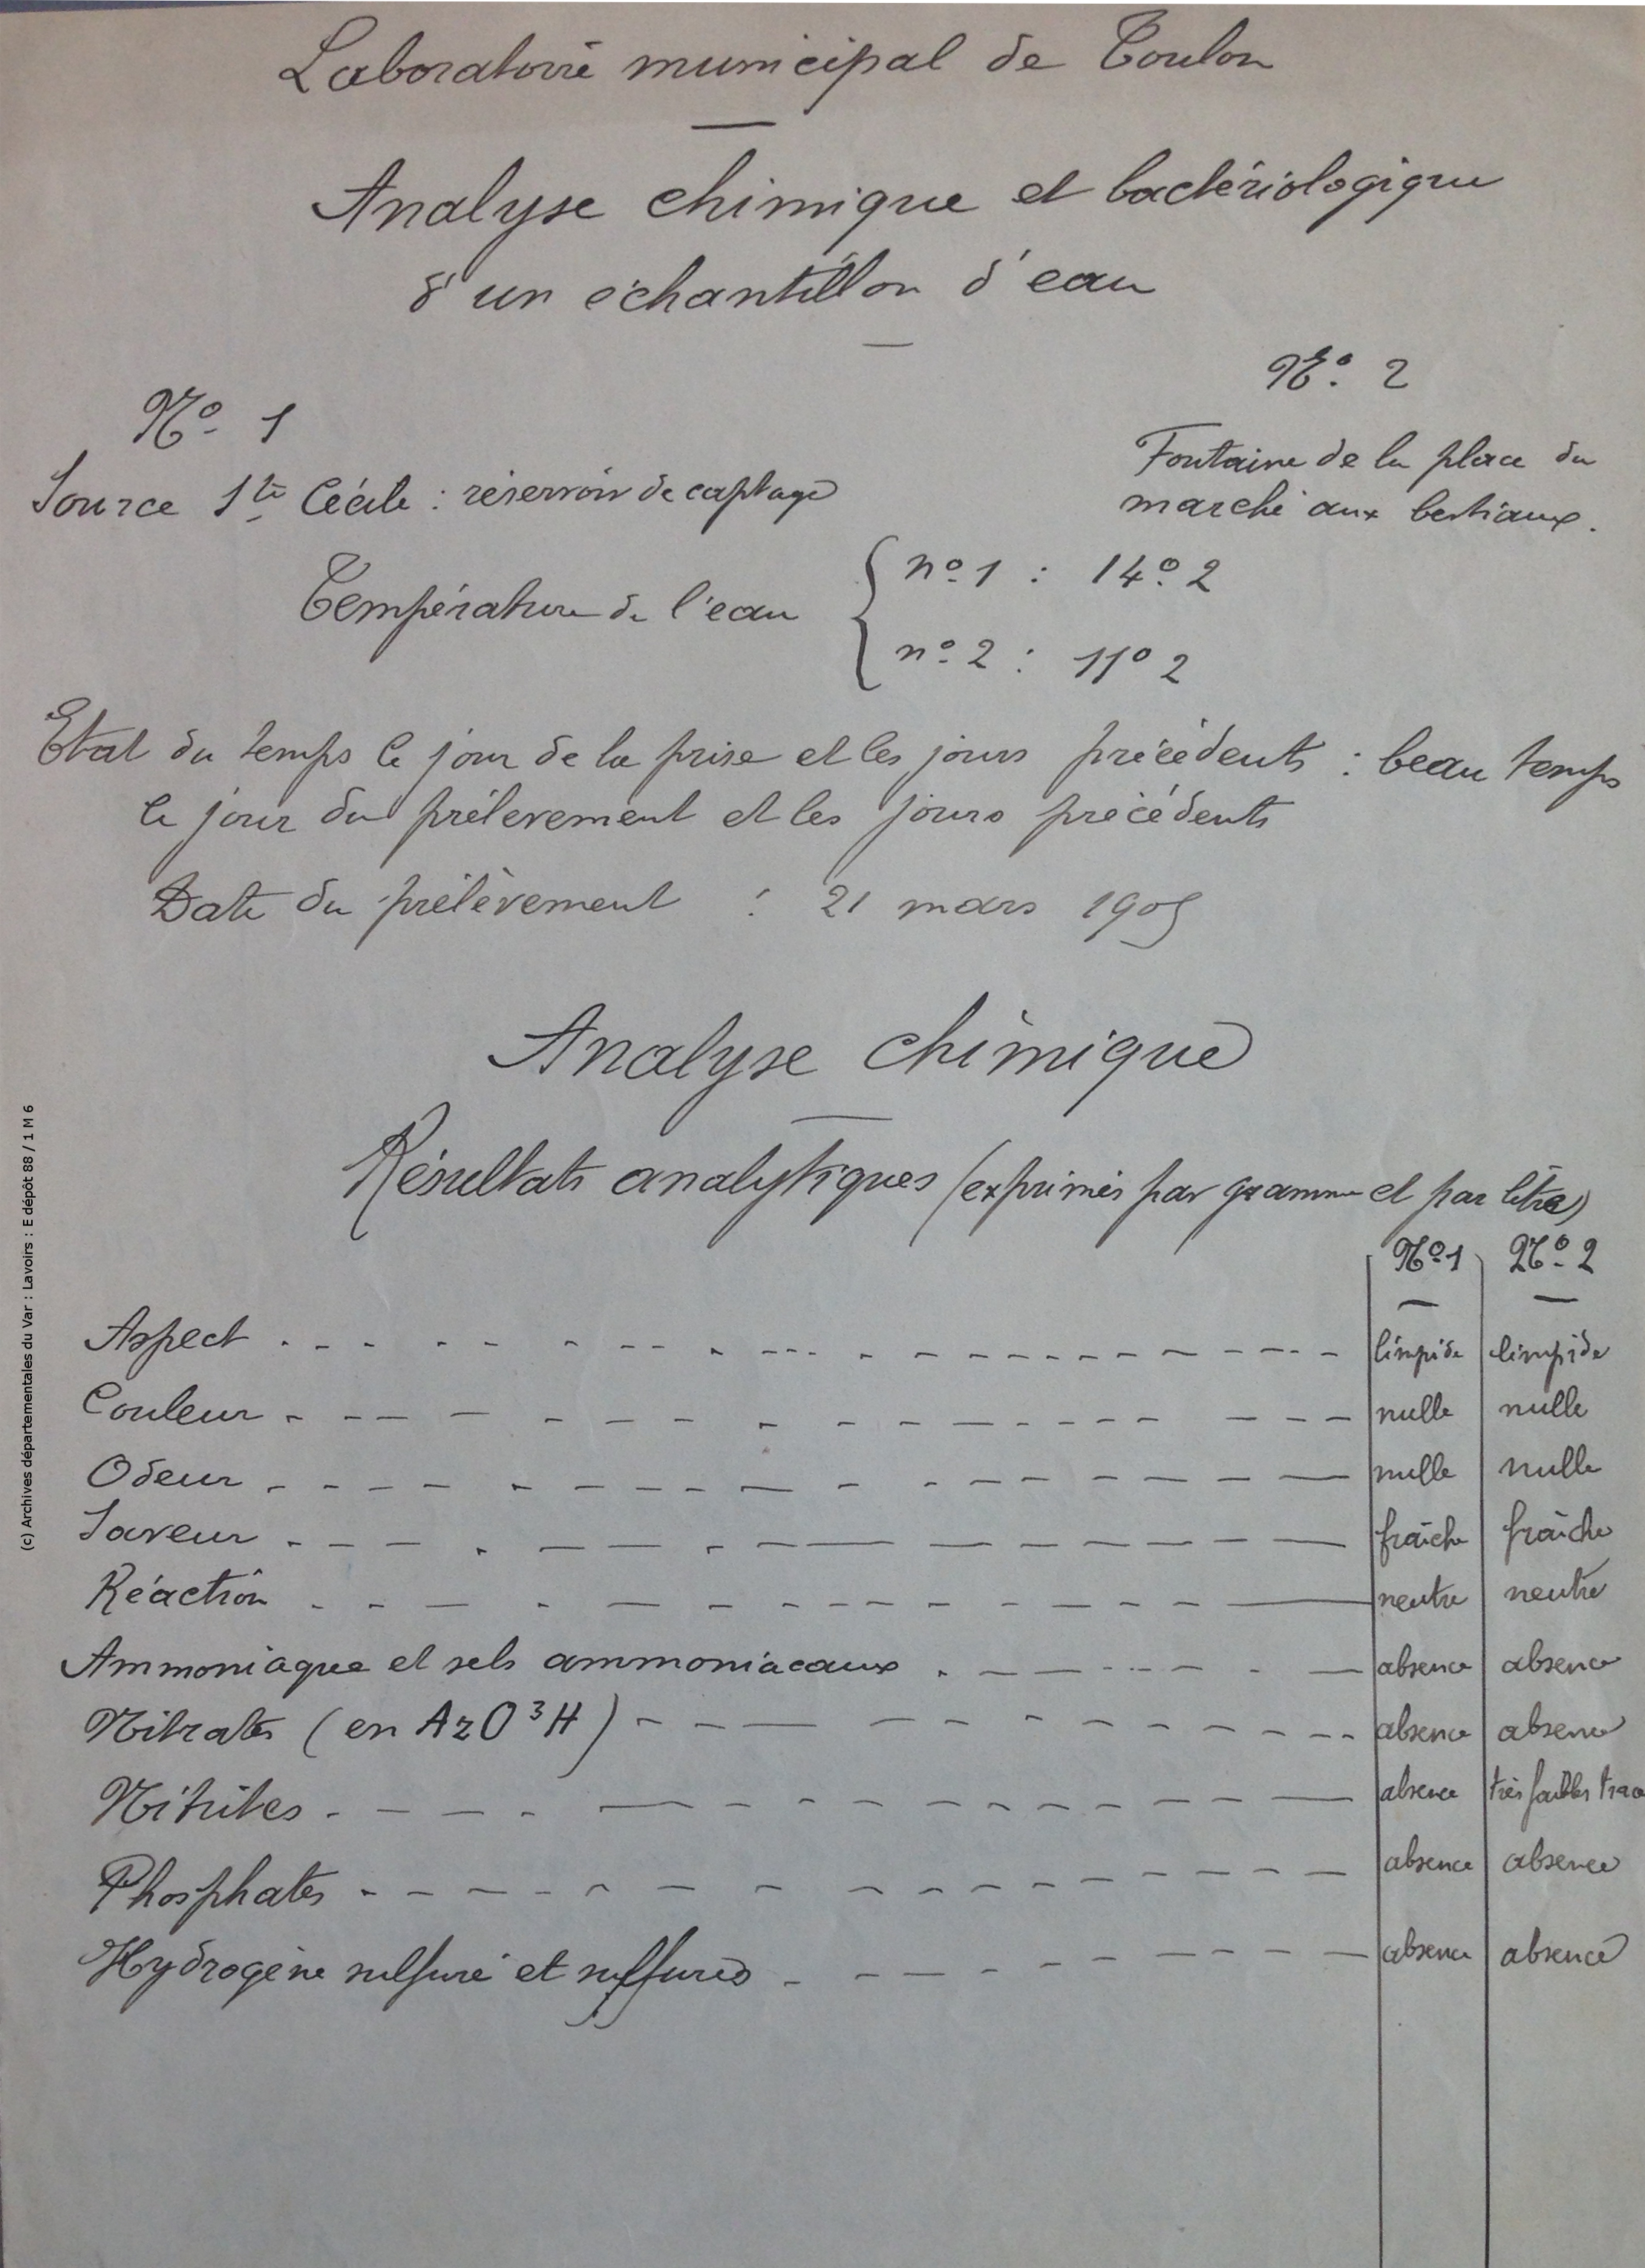 Laboratoire municipal de Toulon
Analyse chimique et bactériologique
d'un échantillon d'eau
No 1
No. 2
Source Ste Cécile : réservoir de captage
Fontaine de la place du
marché aux bestiaux.
Température de l'eau
no 1 : 14o 2
no 2 : 11o 2
Etat du temps le jour de la prise et les jours précédents : beau temps
le jour du prélevement et les jours précédents
Date du prélèvement : 21 mars 1905
Analyse chimique
Résultats analytiques (exprimés par gramme et par litre)
No 1 No 2
Aspect limpide limpide
Couleur nulle nulle
Odeur nulle nulle
Saveur fraîche fraîche
Réaction neutre neutre
Ammoniaque et sels ammoniacaux absence absence
Nitrates (en AzO3H) absence absence
Nitrites absence très faibles trac
Phosphates absence absence
Hydrogène sulfuré et sulfures absence absence
(c) Archives départementales du Var : Lavoirs : E dépôt 88 / 1 M 6